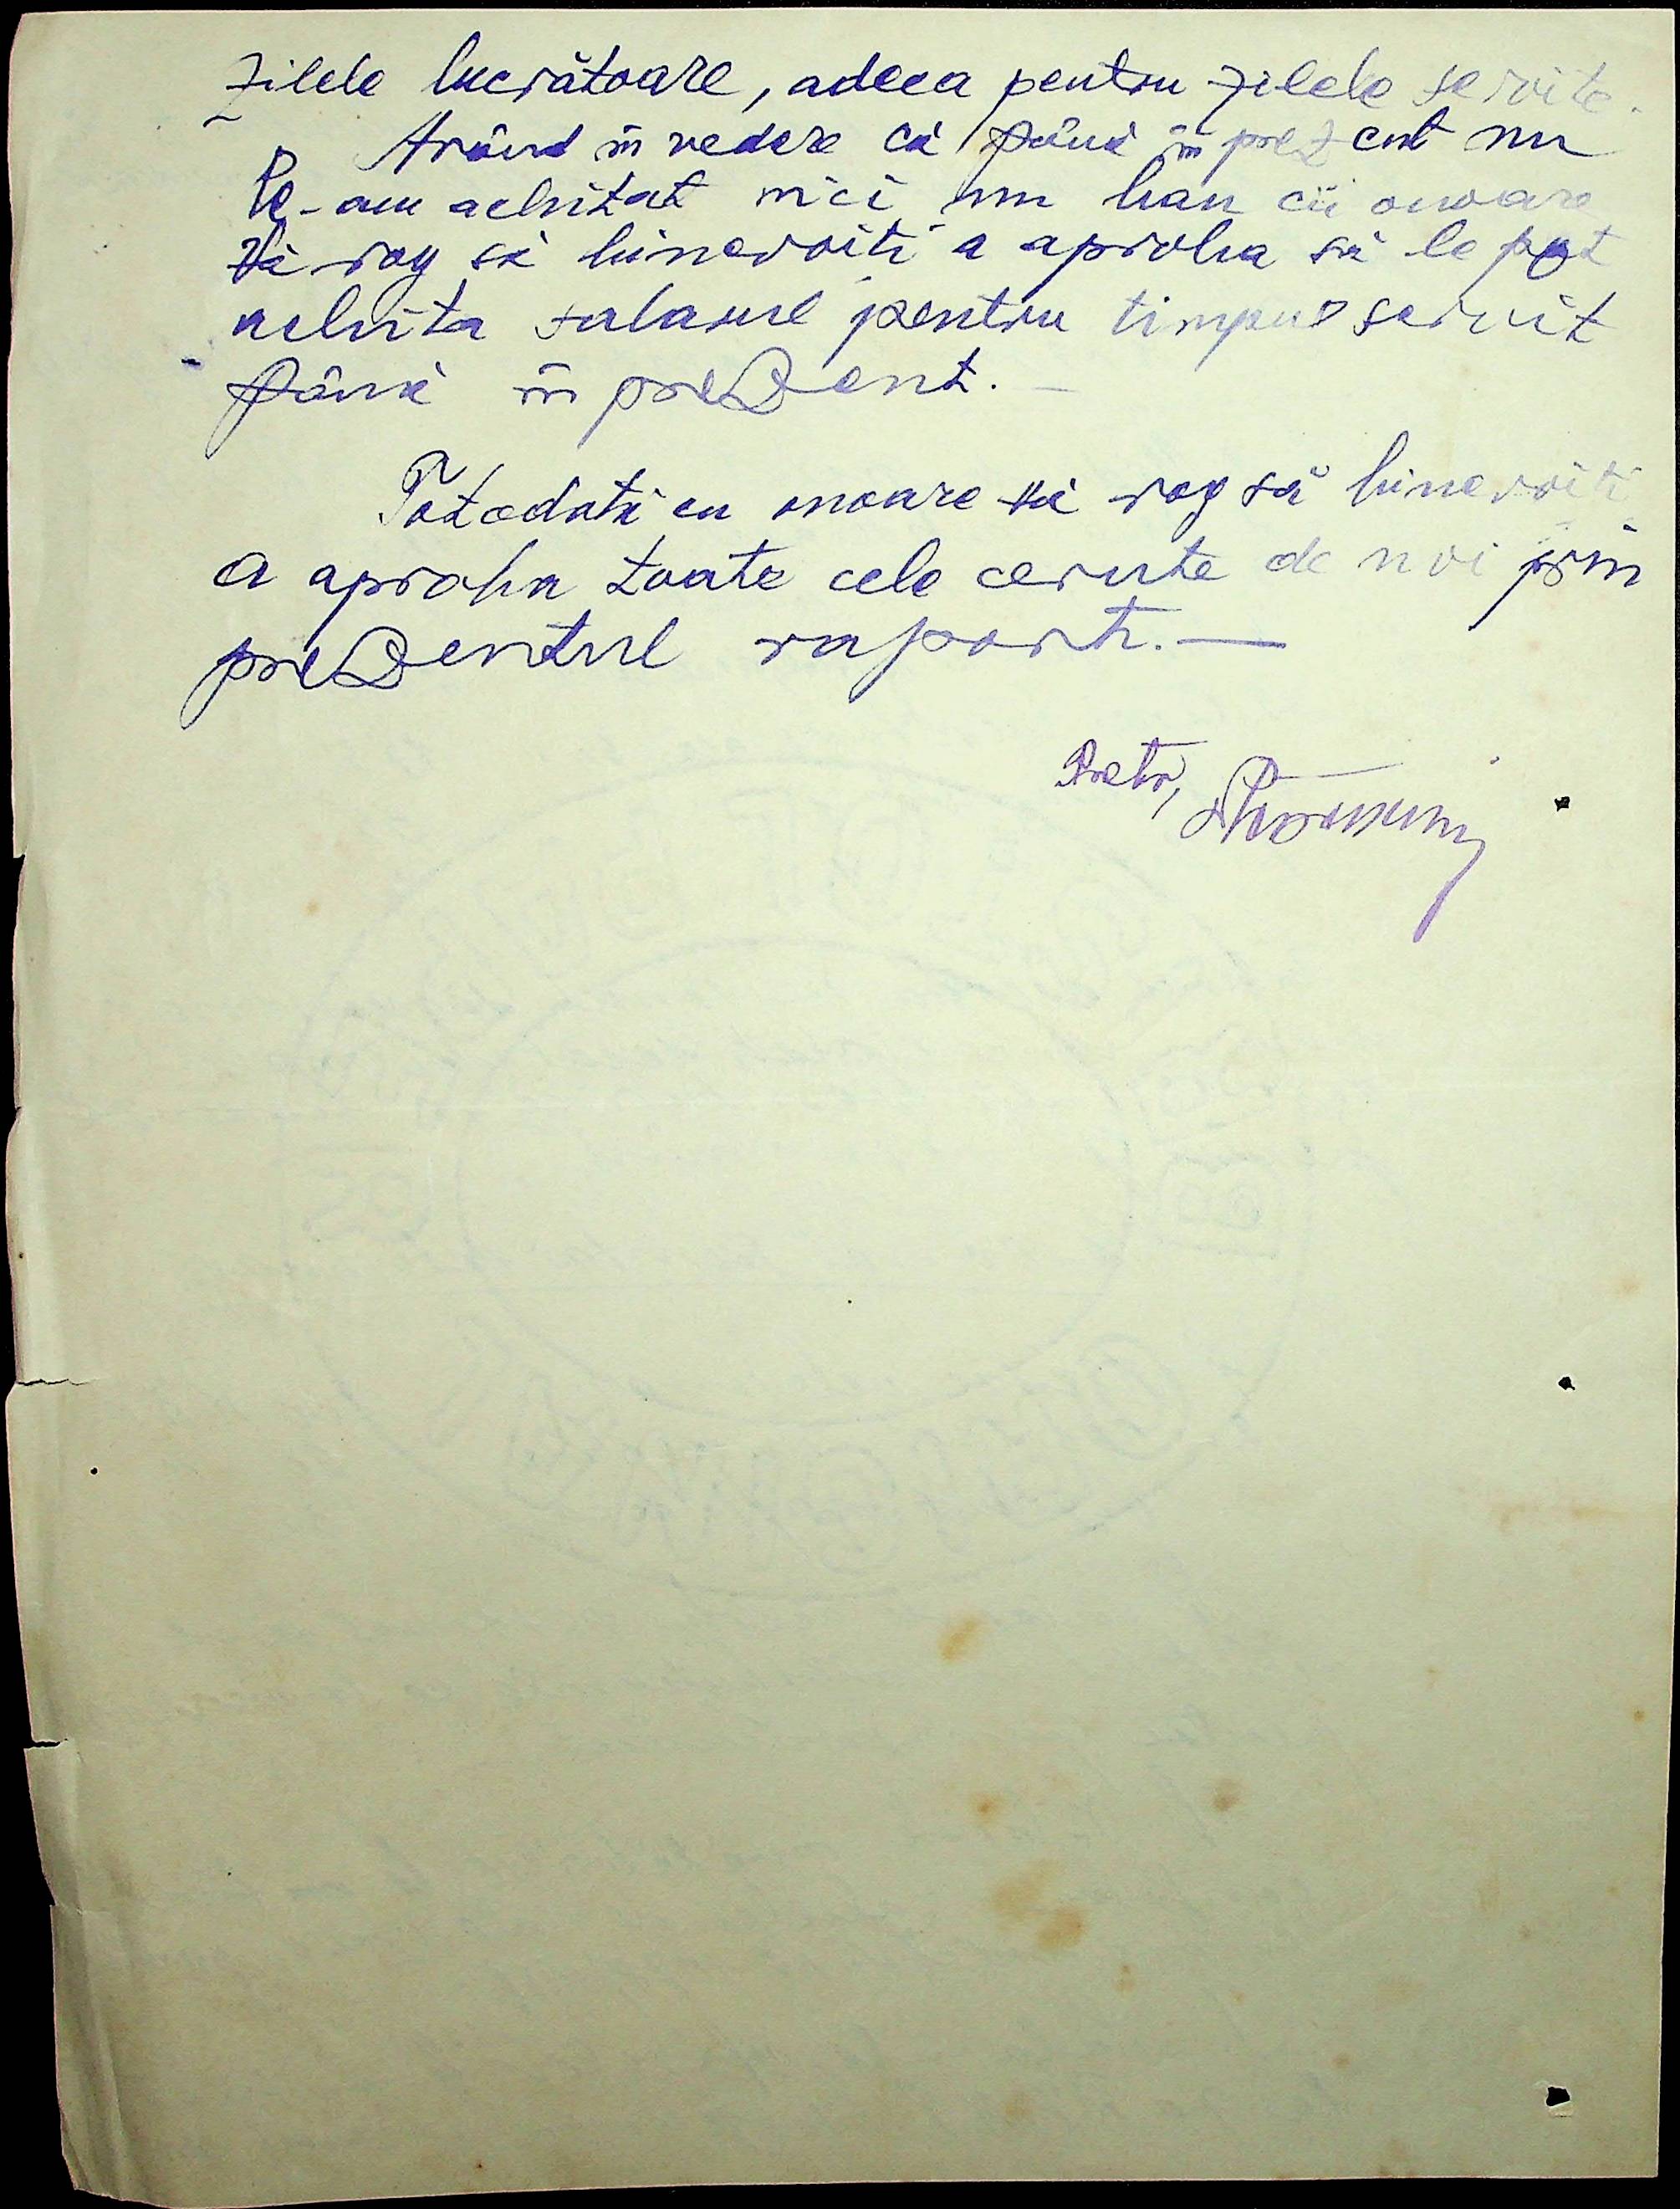 zilele lucrătoare, adeca pentru zilele servite.
Având în vedere că până în prezent nu
le-am achitat nici un ban cu onoare
Vă rog să binevoiți a aproba să le pot
achita salarul pentru timpul servit
până în prezent. —
Totodată cu onoare vă rog să binevoiți
a aproba toate cele cerute de noi prin
prezentul raport. —
Pretor,